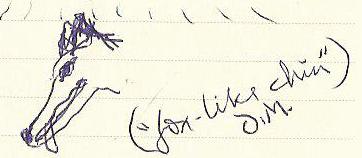 ("fox-like chin")
J.M.